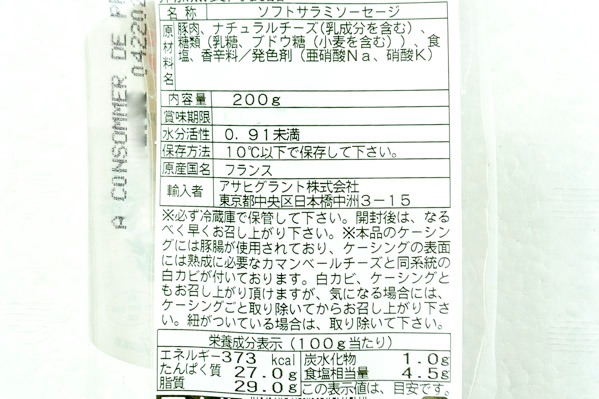 名 称 ソフトサラミソーセージ
原材料名 豚肉、ナチュラルチーズ(乳成分を含む)、
糖類(乳糖、ブドウ糖(小麦を含む))、食
塩、香辛料／発色剤(亜硝酸Na、硝酸K)
内容量 200g
賞味期限
水分活性 0.91未満
保存方法 10℃以下で保存して下さい。
原産国名 フランス
輸入者 アサヒグラント株式会社
東京都中央区日本橋中洲3-15
※必ず冷蔵庫で保管して下さい。開封後は、なる
べく早くお召し上がり下さい。※本品のケーシン
グには豚腸が使用されており、ケーシングの表面
には熟成に必要なカマンベールチーズと同系統の
白カビが付いております。白カビ、ケーシングと
もお召し上がり頂けますが、気になる場合には、
ケーシングごと取り除いてからお召し上がり下さ
い。紐がついている場合は、取り除いて下さい。
栄養成分表示(100g当たり)
エネルギー373 kcal 炭水化物 1.0g
たんぱく質 27.0g 食塩相当量 4.5g
脂質 29.0g この表示値は、目安です。
A CONSOMMER DE